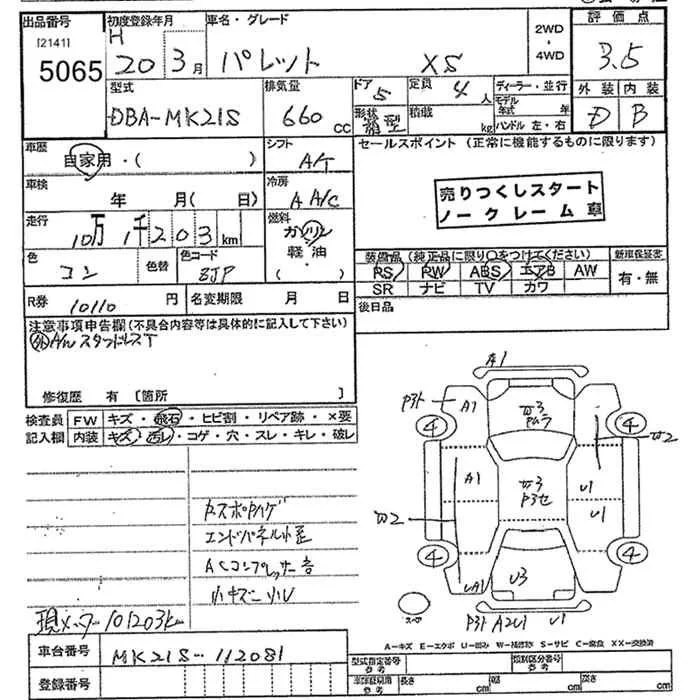 出品番号
[2141]
5065
初度登録年月
H
20 3月
車名・グレード
パレット XS
2WD
・
4WD
評価点
3.5
外装 内装
D B
型式
DBA-MK21S
排気量
660 CC
ドア
5
形状
箱型
定員
4人
積載
kg
ディーラー・並行
モデル年式 年
ハンドル 左・右
車歴
自家用・( )
シフト
A/T
セールスポイント (正常に機能するものに限ります)
売りつくしスタート
ノークレーム車
車検
年 月( 日)
冷房
A A/C
走行
10万1千203km
燃料
ガソリン
軽油
( )
色
コン
色替
色コード
ZJP
装備品(純正品に限り〇をつけてください)
RS PW ABS エアB AW
SR ナビ TV カワ
新車保証書
有・無
R券
10110円
名変期限 月 日
後日品
注意事項申告欄(不具合内容等は具体的に記入して下さい)
修復歴 有 [箇所 ]
検査員
記入欄
FW キズ・飛石・ヒビ割・リペア跡・×要
内装 キズ・汚レ・コゲ・穴・スレ・キレ・破レ
エンドパネル小歪
ACコンプレッサー音
小キズ 小U
現メーター101203km
車台番号
MK21S-112081
登録番号
A1
A1
W3
W2
4 4
A1
W3
U1
U1
W2
4 4
UA1
U3
A2U1 U1
A-キズ E-エクボ U-凹み W-補修跡 S-サビ C-腐食 XX-交換済
型式指定番号
参考
類別区分番号
参考
長さ cm
幅 cm
高さ cm